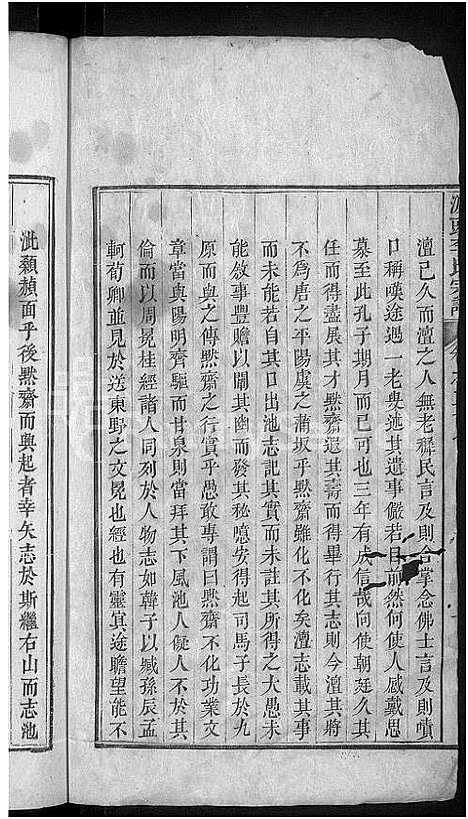 澶已久而澶之人無老穉民言及則合掌念佛士言及則嘖
口稱嘆途遇一老叟述其遺事儼若目前然何使人感戴思
慕至此孔子期月而已可也三年有成信哉向使朝廷久其
任而得盡展其才㷱齋遐其壽而得畢行其志則今澶其將
不為唐之平陽虞之蒲坂乎㷱齋雖化不化矣澶志載其事
而未能盡其口出池志記其實而未註其所得之大愚未
能敘事豐贍以闡其幽而發其秘噫安得起司馬子長於九
原而與之傳㷱齋之行實乎愚敢專謂曰㷱齋不化功業文
章當與陽明齊驅而甘泉則當拜其下風池人儗人不於其
倫而以周晃桂經諸人同列於人物志如韓子以臧孫辰孟
軻荀卿並見於送東野之文晃也有靈冥途瞻望能不
泚顙赬面乎後㷱齋而興起者幸矢志於斯繼右山而志池
李氏宗譜